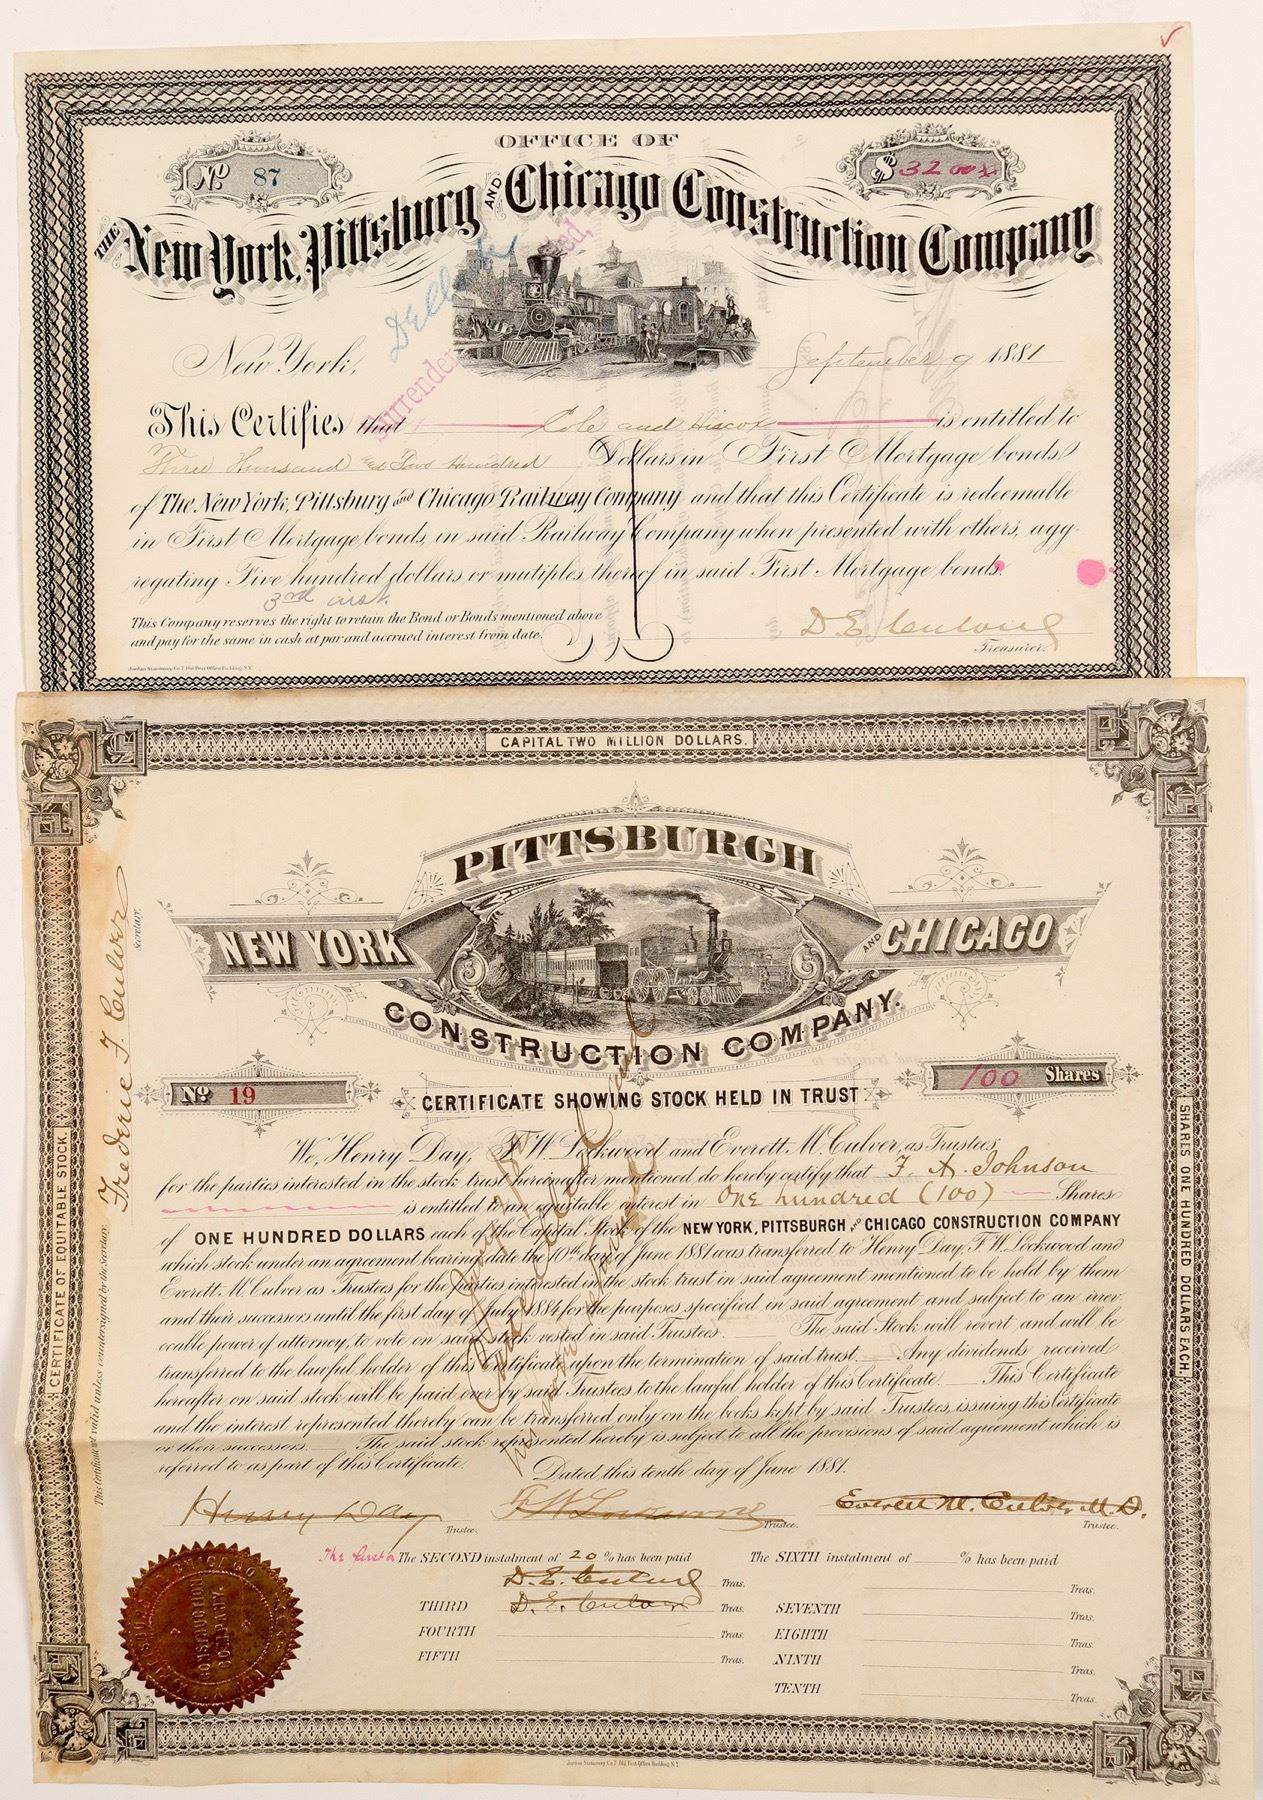 OFFICE OF
No 87
$3200 00
THE NEW YORK, PITTSBURG AND CHICAGO CONSTRUCTION COMPANY
Surrendered,
New York, September 9 1881
This Certifies that Cole and Hiscox is entitled to
Three Thousand Two Hundred Dollars in First Mortgage bonds
of The New York, Pittsburg and Chicago Railway Company and that this Certificate is redeemable
in First Mortgage bonds, in said Railway Company when presented with others, agg-
regating Five hundred dollars or mutiples thereof in said First Mortgage bonds.
3rd inst.
This Company reserves the right to retain the Bond or Bonds mentioned above
and pay for the same in cash at par and accrued interest from date.
D. E. Culver
Treasurer.
Jordan Stationery Co. 7 Old Post Office Building, N.Y.
CAPITAL TWO MILLION DOLLARS.
PITTSBURGH
NEW YORK AND CHICAGO
CONSTRUCTION COMPANY.
No 19
100 Shares
CERTIFICATE SHOWING STOCK HELD IN TRUST
We, Henry Day, F. W. Lockwood and Everett M. Culver, as Trustees,
for the parties interested in the stock trust hereinafter mentioned do hereby certify that F. A. Johnson
is entitled to an equitable interest in One hundred (100) Shares
of ONE HUNDRED DOLLARS each of the Capital Stock of the NEW YORK, PITTSBURGH AND CHICAGO CONSTRUCTION COMPANY
which stock under an agreement bearing date the 10th day of June 1881 was transferred to Henry Day, F. W. Lockwood and
Everett M. Culver as Trustees for the parties interested in the stock trust in said agreement mentioned to be held by them
and their successors until the first day of July 1884 for the purposes specified in said agreement and subject to an irrev-
ocable power of attorney, to vote on said stock vested in said Trustees. The said Stock will revert and will be
transferred to the lawful holder of this Certificate upon the termination of said trust. Any dividends received
hereafter on said stock will be paid over by said Trustees to the lawful holder of this Certificate. This Certificate
and the interest represented thereby can be transferred only on the books kept by said Trustees, issuing this Certificate
or their successors. The said stock represented hereby is subject to all the provisions of said agreement which is
referred to as part of this Certificate. Dated this tenth day of June 1881.
Henry Day Trustee.
F W Lockwood Trustee.
Everett M. Culver M. D. Trustee.
The first & The SECOND instalment of 20 % has been paid
D. E. Culver Treas.
THIRD D. E. Culver Treas.
FOURTH Treas.
FIFTH Treas.
The SIXTH instalment of % has been paid
Treas.
SEVENTH Treas.
EIGHTH Treas.
NINTH Treas.
TENTH Treas.
CONSTRUCTION
COMPANY
CERTIFICATE OF EQUITABLE STOCK.
This Certificate not valid unless countersigned by the Secretary.
Frederic F. Culver
Secretary.
SHARES ONE HUNDRED DOLLARS EACH.
Jordan Stationery Co. 7 Old Post Office Building, N.Y.